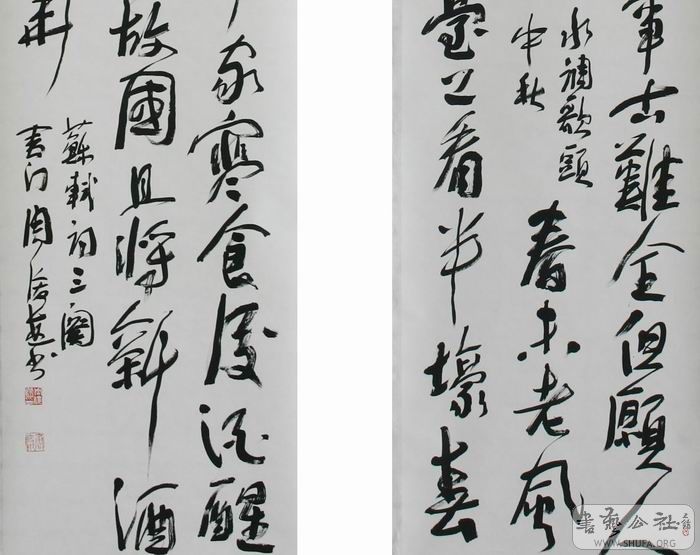 事古難全但願人
水調歌頭
中秋
春未老風
臺上看半壕春
家寒食後酒醒
故國且將新酒
蘇軾詞三闋
周
書藝公社
WWW.SHUFA.ORG